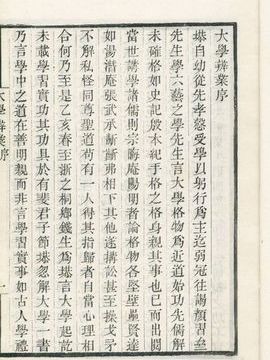 大學辨業序
塨自幼從先孝慤受學以躬行爲主迄弱冠往謁顏習齋
先生學六藝之學先生言大學格物爲近道始功先儒解
未確格如史記殷本紀手格之格身親其事也已而出閱
當世講學諸儒則宗晦庵陽明者論格物各堅壁壘賢達
如湯潛庵張武承齗齗弗相下其他遂攟訟甚至操戈矛
不解私怪同尊聖道苟有一人得其指歸者自當心理相
合何乃至是乙亥春至浙之桐鄉錢生爲塨言大學起訖
未載學習實功其功具於有婓君子節塨忽解大學一書
乃言學中之道在善明親而非言學習實事如古人學禮
大學辨業序